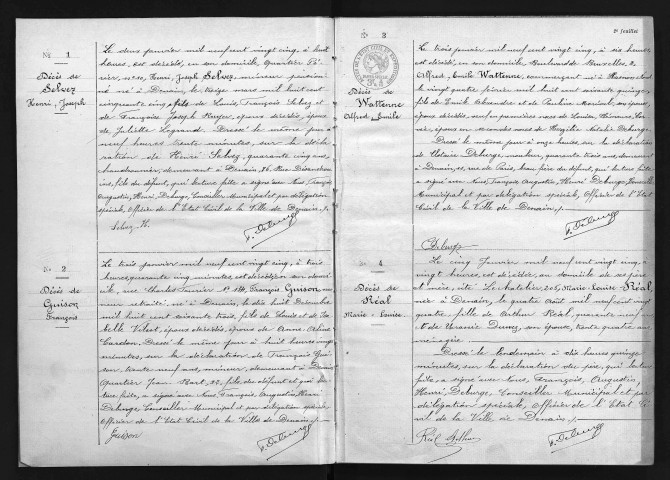 N° 1
Décès de
Selvez
Henri, Joseph
Le deux janvier mil neuf cent vingt cinq, à huit
heures, est décédé, en son domicile, Quartier
N° 10, Henri, Joseph Selvez, mineur pensionné
né à Denain, le treize mars mil huit cent
cinquante cinq, fils de Louis, François Selvez et
de Françoise Joseph époux décédés, époux
de Juliette Legrand. Dressé le même jour à
neuf heures trente minutes, sur la déclaration
de Henri Selvez, quarante cinq ans,
chaudronnier, demeurant à Denain, 76, Rue
fils du défunt, qui lecture faite a signé avec Nous, François
Augustin, Henri, Deburge, Conseiller Municipal et par délégation
spéciale, Officier de l'Etat Civil de la Ville de Denain./.
Selvez H.
F. Deburge
N° 2
Décès de
Guison
François
Le trois janvier mil neuf cent vingt cinq, à trois
heures quarante cinq minutes, est décédé en son domicile,
rue Charles Tournier N° 114, François Guison, mineur
retraité, né à Denain, le dix huit Décembre
mil huit cent soixante trois, fils de Louis et de
époux décédés, époux de Anne
Cardon. Dressé le même jour à huit heures vingt
minutes, sur la déclaration de François Guison,
trente neuf ans, mineur, demeurant à Denain
Quartier Jean Bart, 22, fils du défunt et qui lecture
faite, a signé avec Nous, François, Augustin, Henri
Deburge Conseiller Municipal et par délégation spéciale
Officier de l'Etat Civil de la Ville de Denain./.
Guison
F. Deburge
2e feuillet
N° 3
Décès de
Wattenne
Alfred, Emile
Le trois janvier mil neuf cent vingt cinq, à six heures
est décédé, en son domicile Boulevard de Bruxelles 2,
Alfred, Emile Wattenne, commerçant, né à
le vingt quatre février mil huit cent soixante quinze,
fils de Emile Alexandre et de Pauline époux,
époux décédés, veuf en premières noces de Louise,
époux en secondes noces de Deburge.
Dressé le même jour à onze heures, sur la déclaration
de Deburge, quarante trois ans, demeurant
à Denain, rue de Paris, beau frère du défunt, qui lecture faite
a signé avec Nous François Augustin, Henri Deburge Conseiller
Municipal et par délégation spéciale, Officier de l'Etat
Civil de la Ville de Denain./.
Deburge
F. Deburge
N° 4
Décès de
Réal
Marie-Louise
Le cinq Janvier mil neuf cent vingt cinq, à
vingt heures, est décédée, au domicile de ses père
et mère, cité Le Chatelier 205, Marie-Louise Réal,
née à Denain, le quatre Août mil neuf cent vingt
quatre, fille de Arthur Réal, quarante neuf ans
et de Uranie son épouse, trente quatre ans
ménagère.
Dressé le lendemain à dix heures quinze
minutes, sur la déclaration du père, qui lecture
faite, a signé avec Nous, François, Augustin,
Henri, Deburge, Conseiller Municipal et par
délégation spéciale, Officier de l'Etat Civil
de la Ville de Denain./.
Réal Arthur
F. Deburge